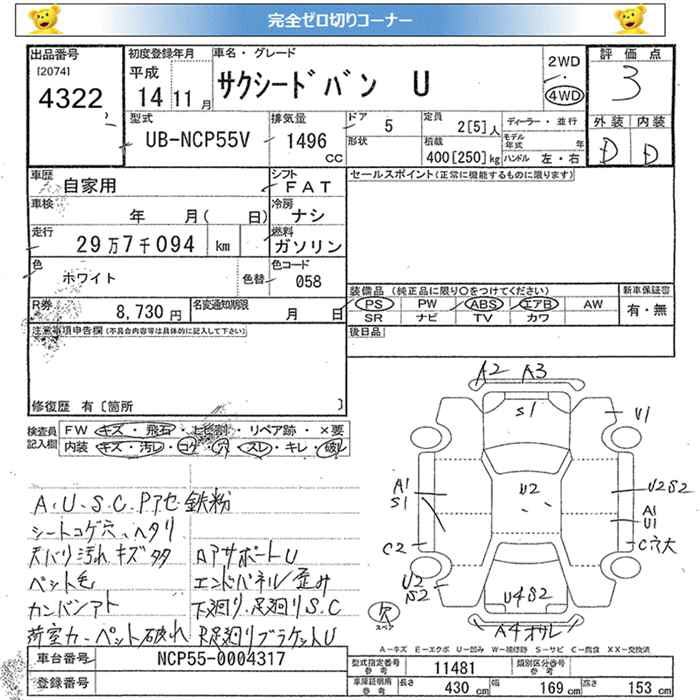 完全ゼロ切りコーナー
出品番号
[2074]
4322
初度登録年月
平成
14 11 月
車名・グレード
サクシードバン U
2WD
4WD
評価点
3
型式
UB-NCP55V
排気量
1496
CC
ドア
5
形状
定員
2[5] 人
積載
400[250] kg
ディーラー・並行
モデル年式 年
ハンドル 左・右
外装 内装
D D
車歴
自家用
シフト
FAT
セールスポイント(正常に機能するものに限ります)
車検
年 月( 日)
冷房
ナシ
走行
29万7千094 km
燃料
ガソリン
色
ホワイト
色替
色コード
058
装備品 (純正品に限り○をつけてください)
新車保証書
PS PW ABS エアB AW
有・無
SR ナビ TV カワ
R券
8,730 円
名変通知期限
月 日
後日品
注意事項申告欄(不具合内容等は具体的に記入して下さい)
修復歴 有〔箇所 〕
検査員記入欄
FW キズ・飛石・ヒビ割・リペア跡・×要
内装 キズ・汚レ・コゲ・穴・スレ・キレ・破レ
A.U.S.C.Pアセ 鉄粉
シートコゲ穴、ヘタリ
天バリ汚れ キズ タタ
Rアサポート U
ペット毛
エンドパネル/歪み
カンバンアト
下廻り.足廻りS.C
荷室カーペット破れ
R足廻りブラケットU
A2 A3
S1
V1
A1
S1
U2
U2S2
A1
U1
C2
C穴大
U2
S2
U4S2
欠
スペア
A4オサレ
A-キズ E-エクボ U-凹み W-補修跡 S-サビ C-腐食 XX-交換済
車台番号
NCP55-0004317
型式指定番号
11481
類別区分番号
登録番号
車庫証明用
長さ 430 cm
幅 169 cm
高さ 153 cm